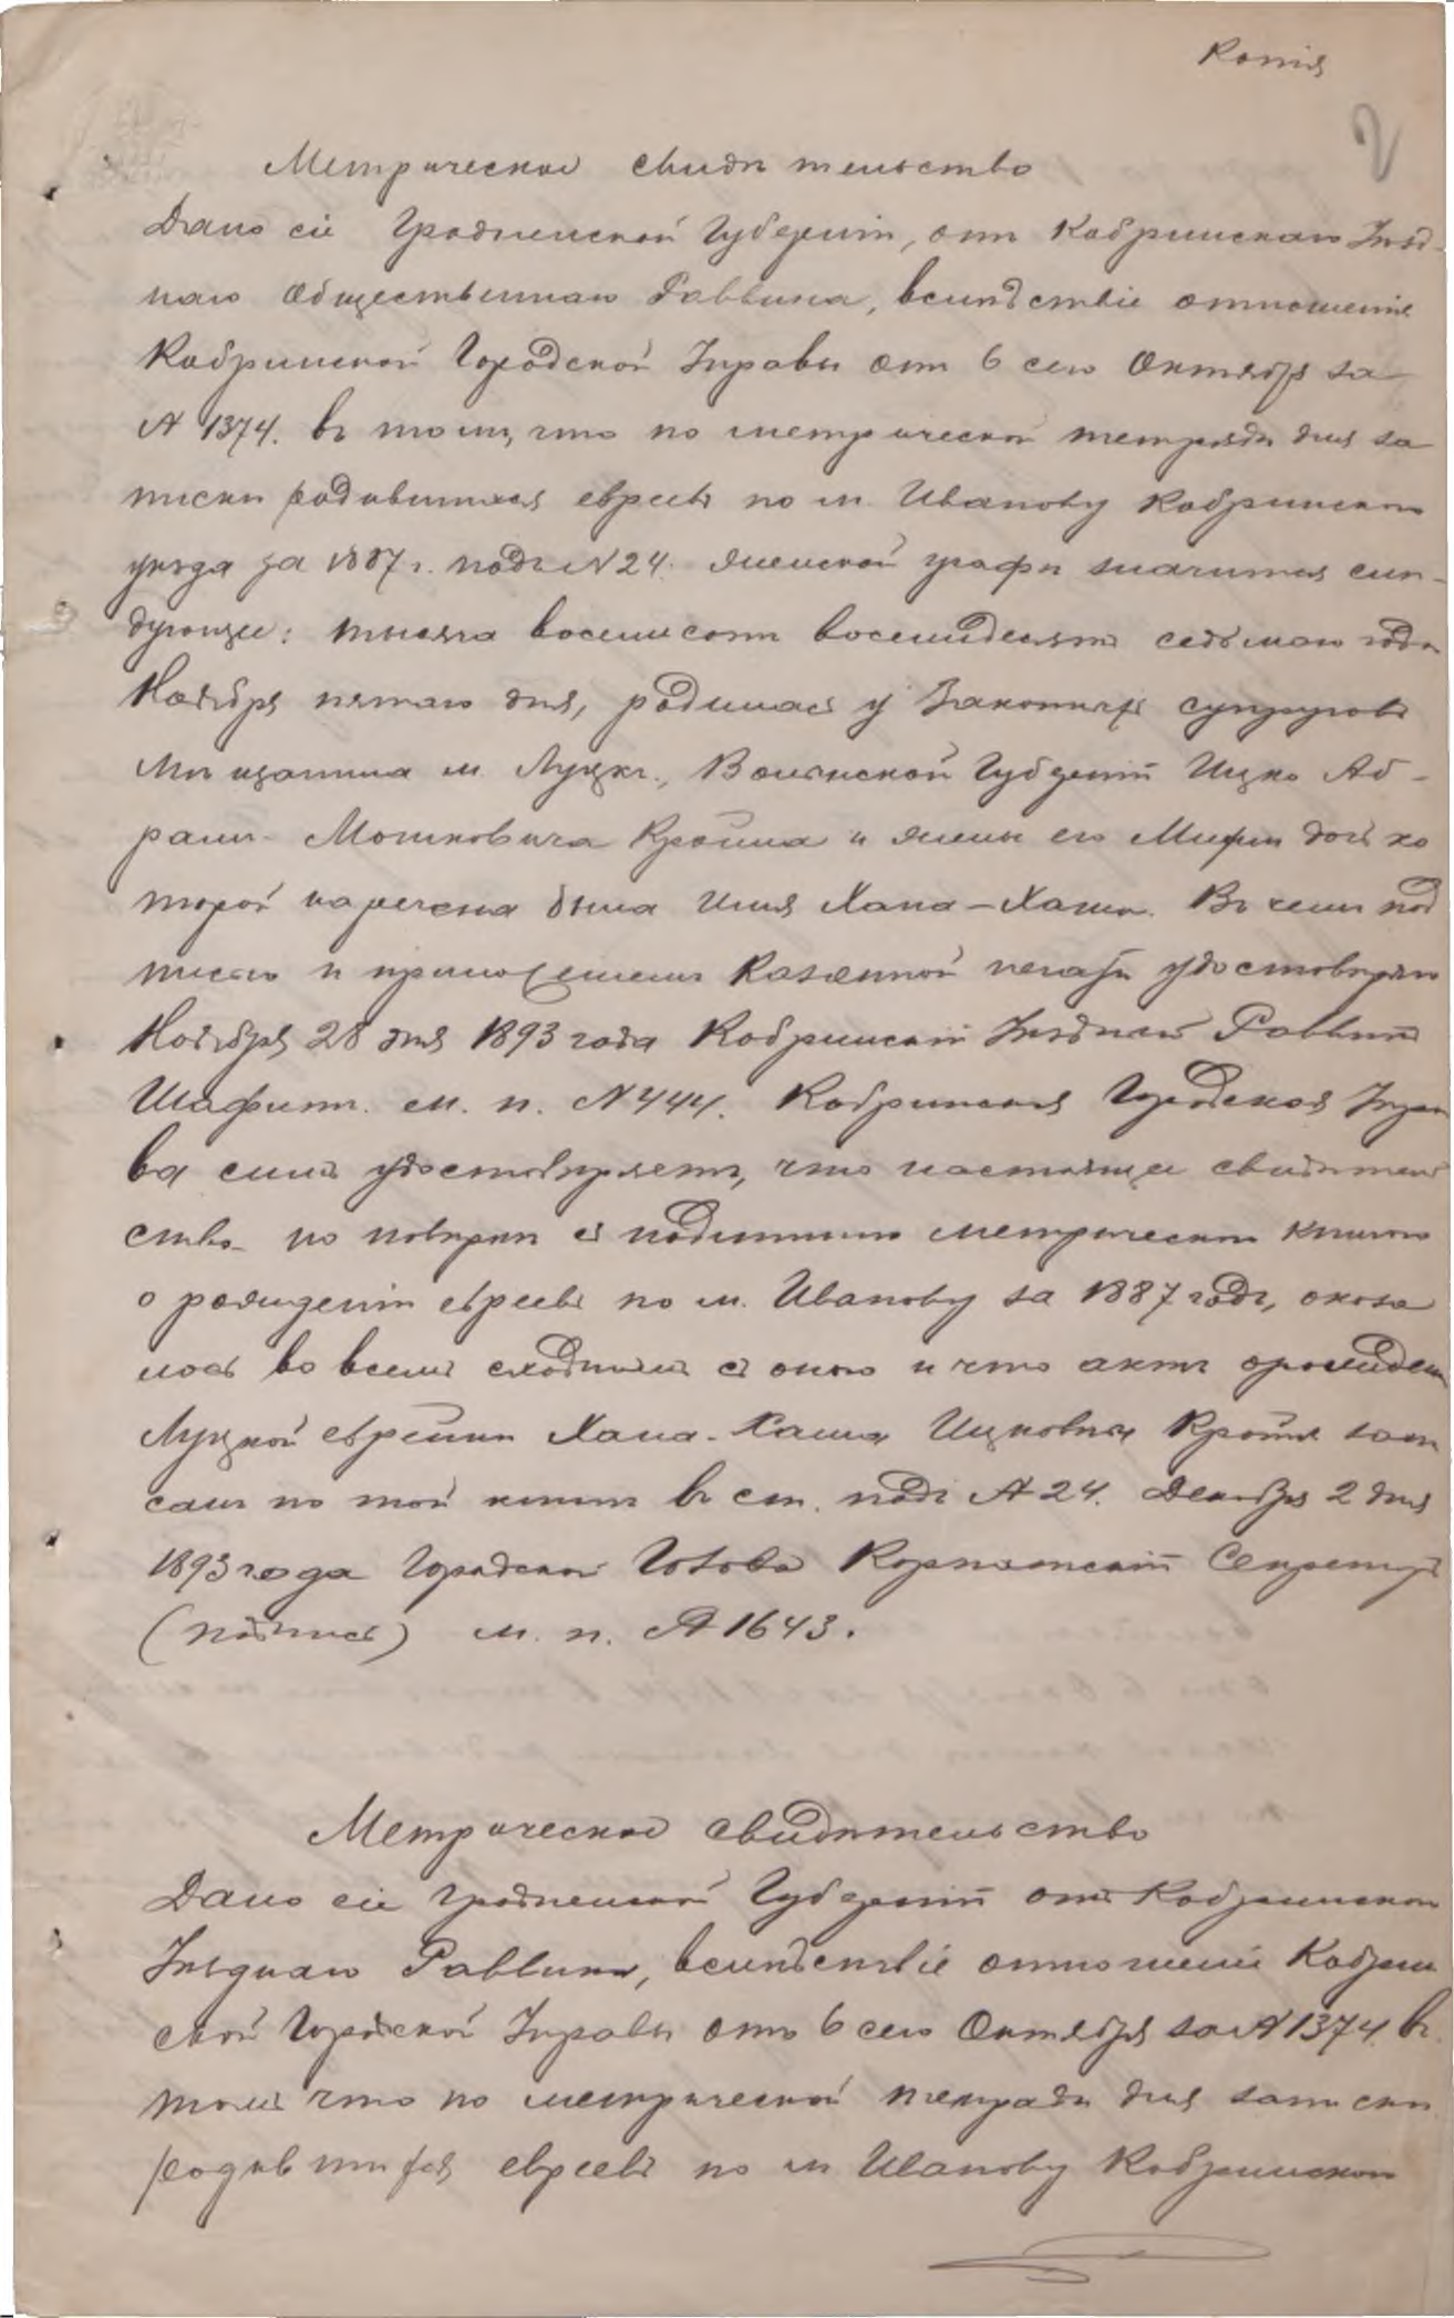 Копія
2
Метрическое свидѣтельство
Дано сіе Гродненской Губерніи, отъ Кобринскаго Уѣзд-
наго Общественнаго Раввина, вслѣдствіе отношенія
Кобринской Городской Управы отъ 6 сего Октября за
№ 1374. въ томъ, что по метрической тетради для за
писки родившихся евреевъ по м. Иванову Кобринскаго
уѣзда за 1887 г. подъ № 24. женской графы значится слѣ-
дующее: тысяча восемьсотъ восемьдесятъ седьмаго года
Ноября пятаго дня, родилась у законныхъ супруговъ
Мѣщанина м. Луцка, Волынской Губерніи Ицко Аб-
рамъ Мошковича Кройна и жены его дочь ко
торой наречена была имя Хана-Хаша. Въ чемъ под
писью и приложеніемъ Казенной печати удостовѣряю
Ноября 28 дня 1893 года Кобринскій Уѣздный Раввинъ
Шафитъ. м. п. № 444. Кобринская Городская Упра
ва симъ удостовѣряетъ, что настоящее свидѣтель
ство по повѣркѣ съ подлинною метрическою книгою
о рожденіи евреевъ по м. Иванову за 1887 годъ, оказа
лось во всемъ сходнымъ съ оною и что актъ о рожденіи
Луцкой еврейки Хана-Хаша Ицковны Кройна запи
санъ по той книгѣ въ ст. подъ № 24. Декабря 2 дня
1893 года Городской Голова Секретарь
(подпись) м. п. № 1643.
Метрическое свидѣтельство
Дано сіе Гродненской Губерніи отъ Кобринскаго
Уѣзднаго Раввина, вслѣдствіе отношенія Кобрин
ской Городской Управы отъ 6 сего Октября за № 1374. въ
томъ что по метрической тетради для записки
родившихся евреевъ по м Иванову Кобринскаго